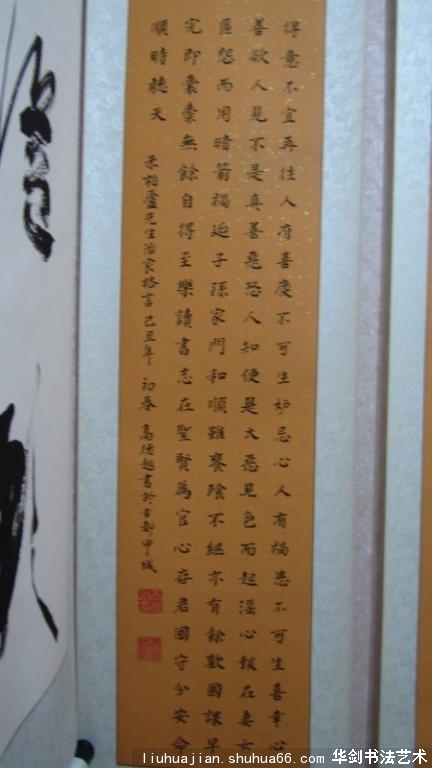 得意不宜再往人有喜慶不可生妒忌心人有禍患不可生喜幸心
善欲人見不是真善惡恐人知便是大惡見色而起淫心報在妻女
匿怨而用暗箭禍延子孫家門和順雖饔飧不繼亦有餘歡國課早
完即囊橐無餘自得至樂讀書志在聖賢為官心存君國守分安命
順時聽天
朱柏廬先生治家格言己丑年初春高德超書於古都申城
liuhuajian.shuhua66.com 华剑书法艺术